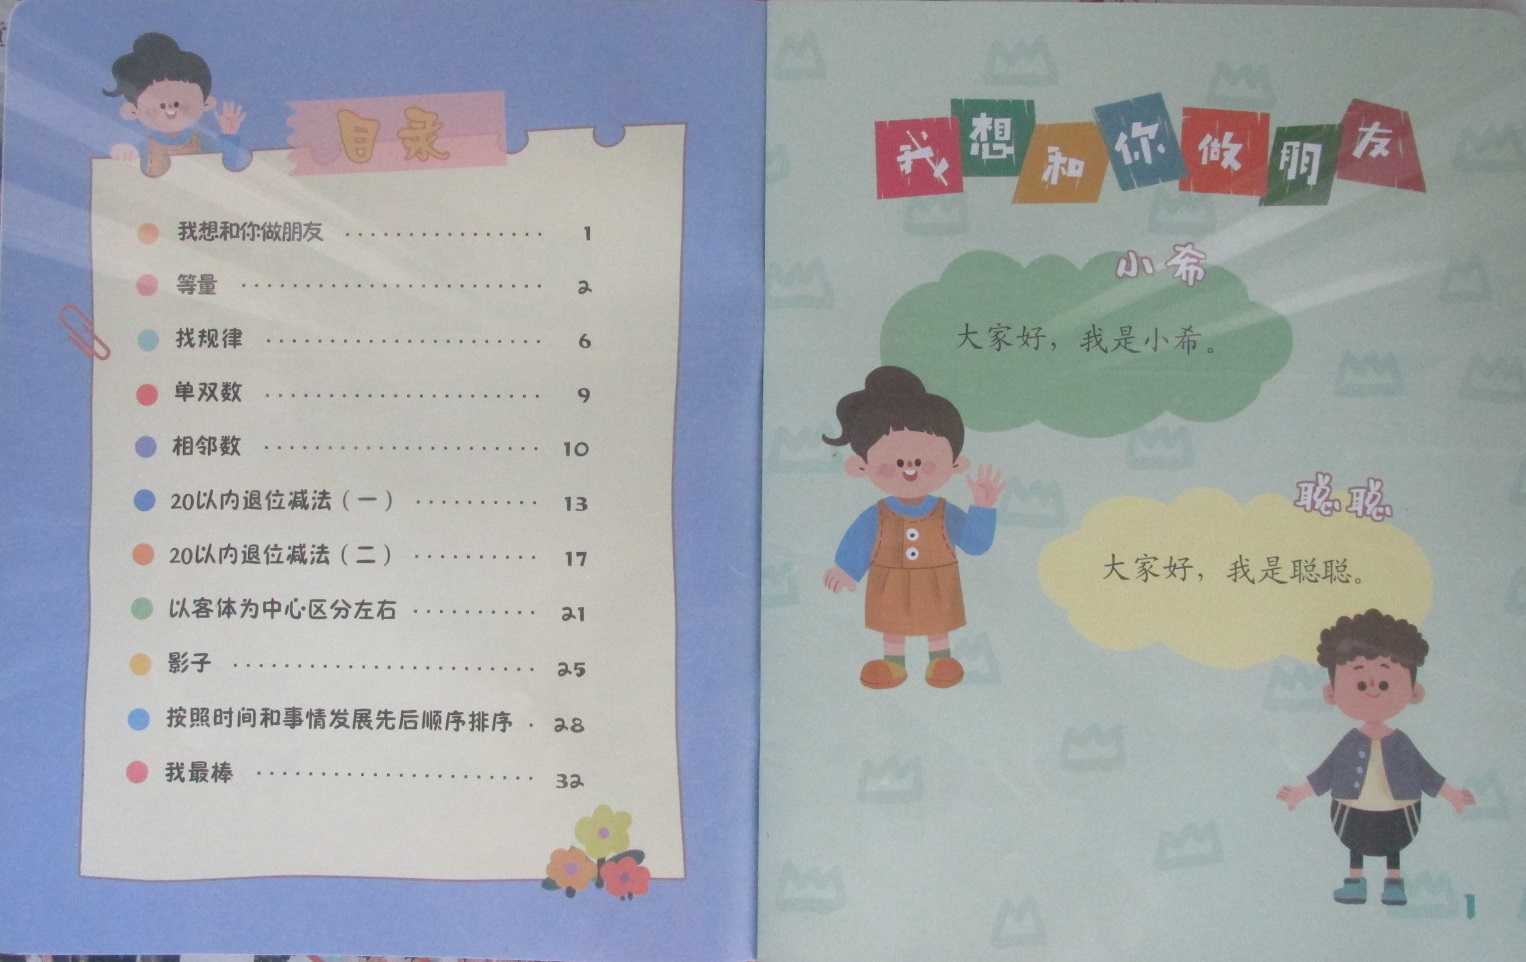 目录
我想和你做朋友 ················ 1
等量 ························ 2
找规律 ······················ 6
单双数 ······················ 9
相邻数 ······················ 10
20以内退位减法（一） ·········· 13
20以内退位减法（二） ·········· 17
以客体为中心区分左右 ·········· 21
影子 ························ 25
按照时间和事情发展先后顺序排序 · 28
我最棒 ······················ 32
我想和你做朋友
小希
大家好，我是小希。
聪聪
大家好，我是聪聪。
1